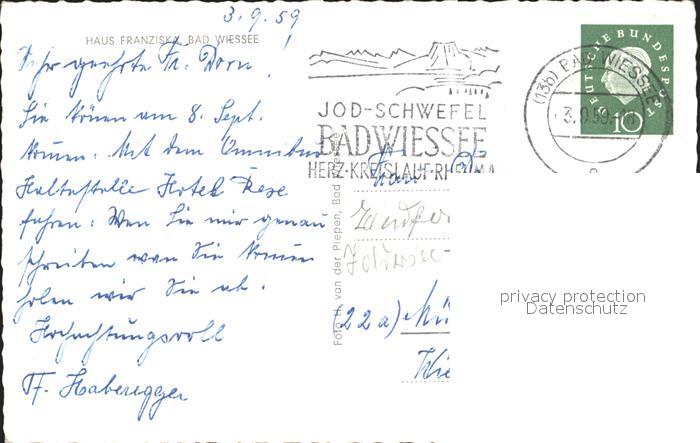 3.9.59
HAUS FRANZISKA, BAD WIESSEE
Sehr geehrte Fr. Dorn!
Sie können am 8. Sept.
kommen. Mit dem Omnibus
Haltestelle Hotel Rose
fahren. Wen Sie mir genau
schreiben wan Sie kommen
holen wir Sie ab.
Hochachtungsvoll
Fr. Haberegger
JOD-SCHWEFEL
BAD WIESSEE
HERZ·KREISLAUF·RHEUMA
DEUTSCHE BUNDESPOST
10
(13b) BAD WIESSEE
-3.9.59
a
Foto: van der Piepen, Bad Wiessee
Frau D
(22a) Mü
privacy protection
Datenschutz